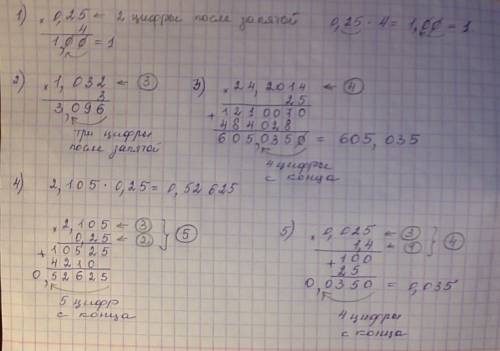 1) × 0,25 ← 2 цифры после запятой 0,25 · 4 = 1,00 = 1
4
1,00 = 1
2) × 1,032 ← 3
3
3,096
три цифры
после запятой
3) × 24,2014 ← 4
25
+ 1210070
484028
605,0350 = 605,035
4 цифры
с конца
4) 2,105 · 0,25 = 0,52625
× 2,105 ← 3
0,25 ← 2 } 5
+ 10525
4210
0,52625
5 цифр
с конца
5) × 0,025 ← 3
1,4 ← 1 } 4
+ 100
25
0,0350 = 0,035
4 цифры
с конца